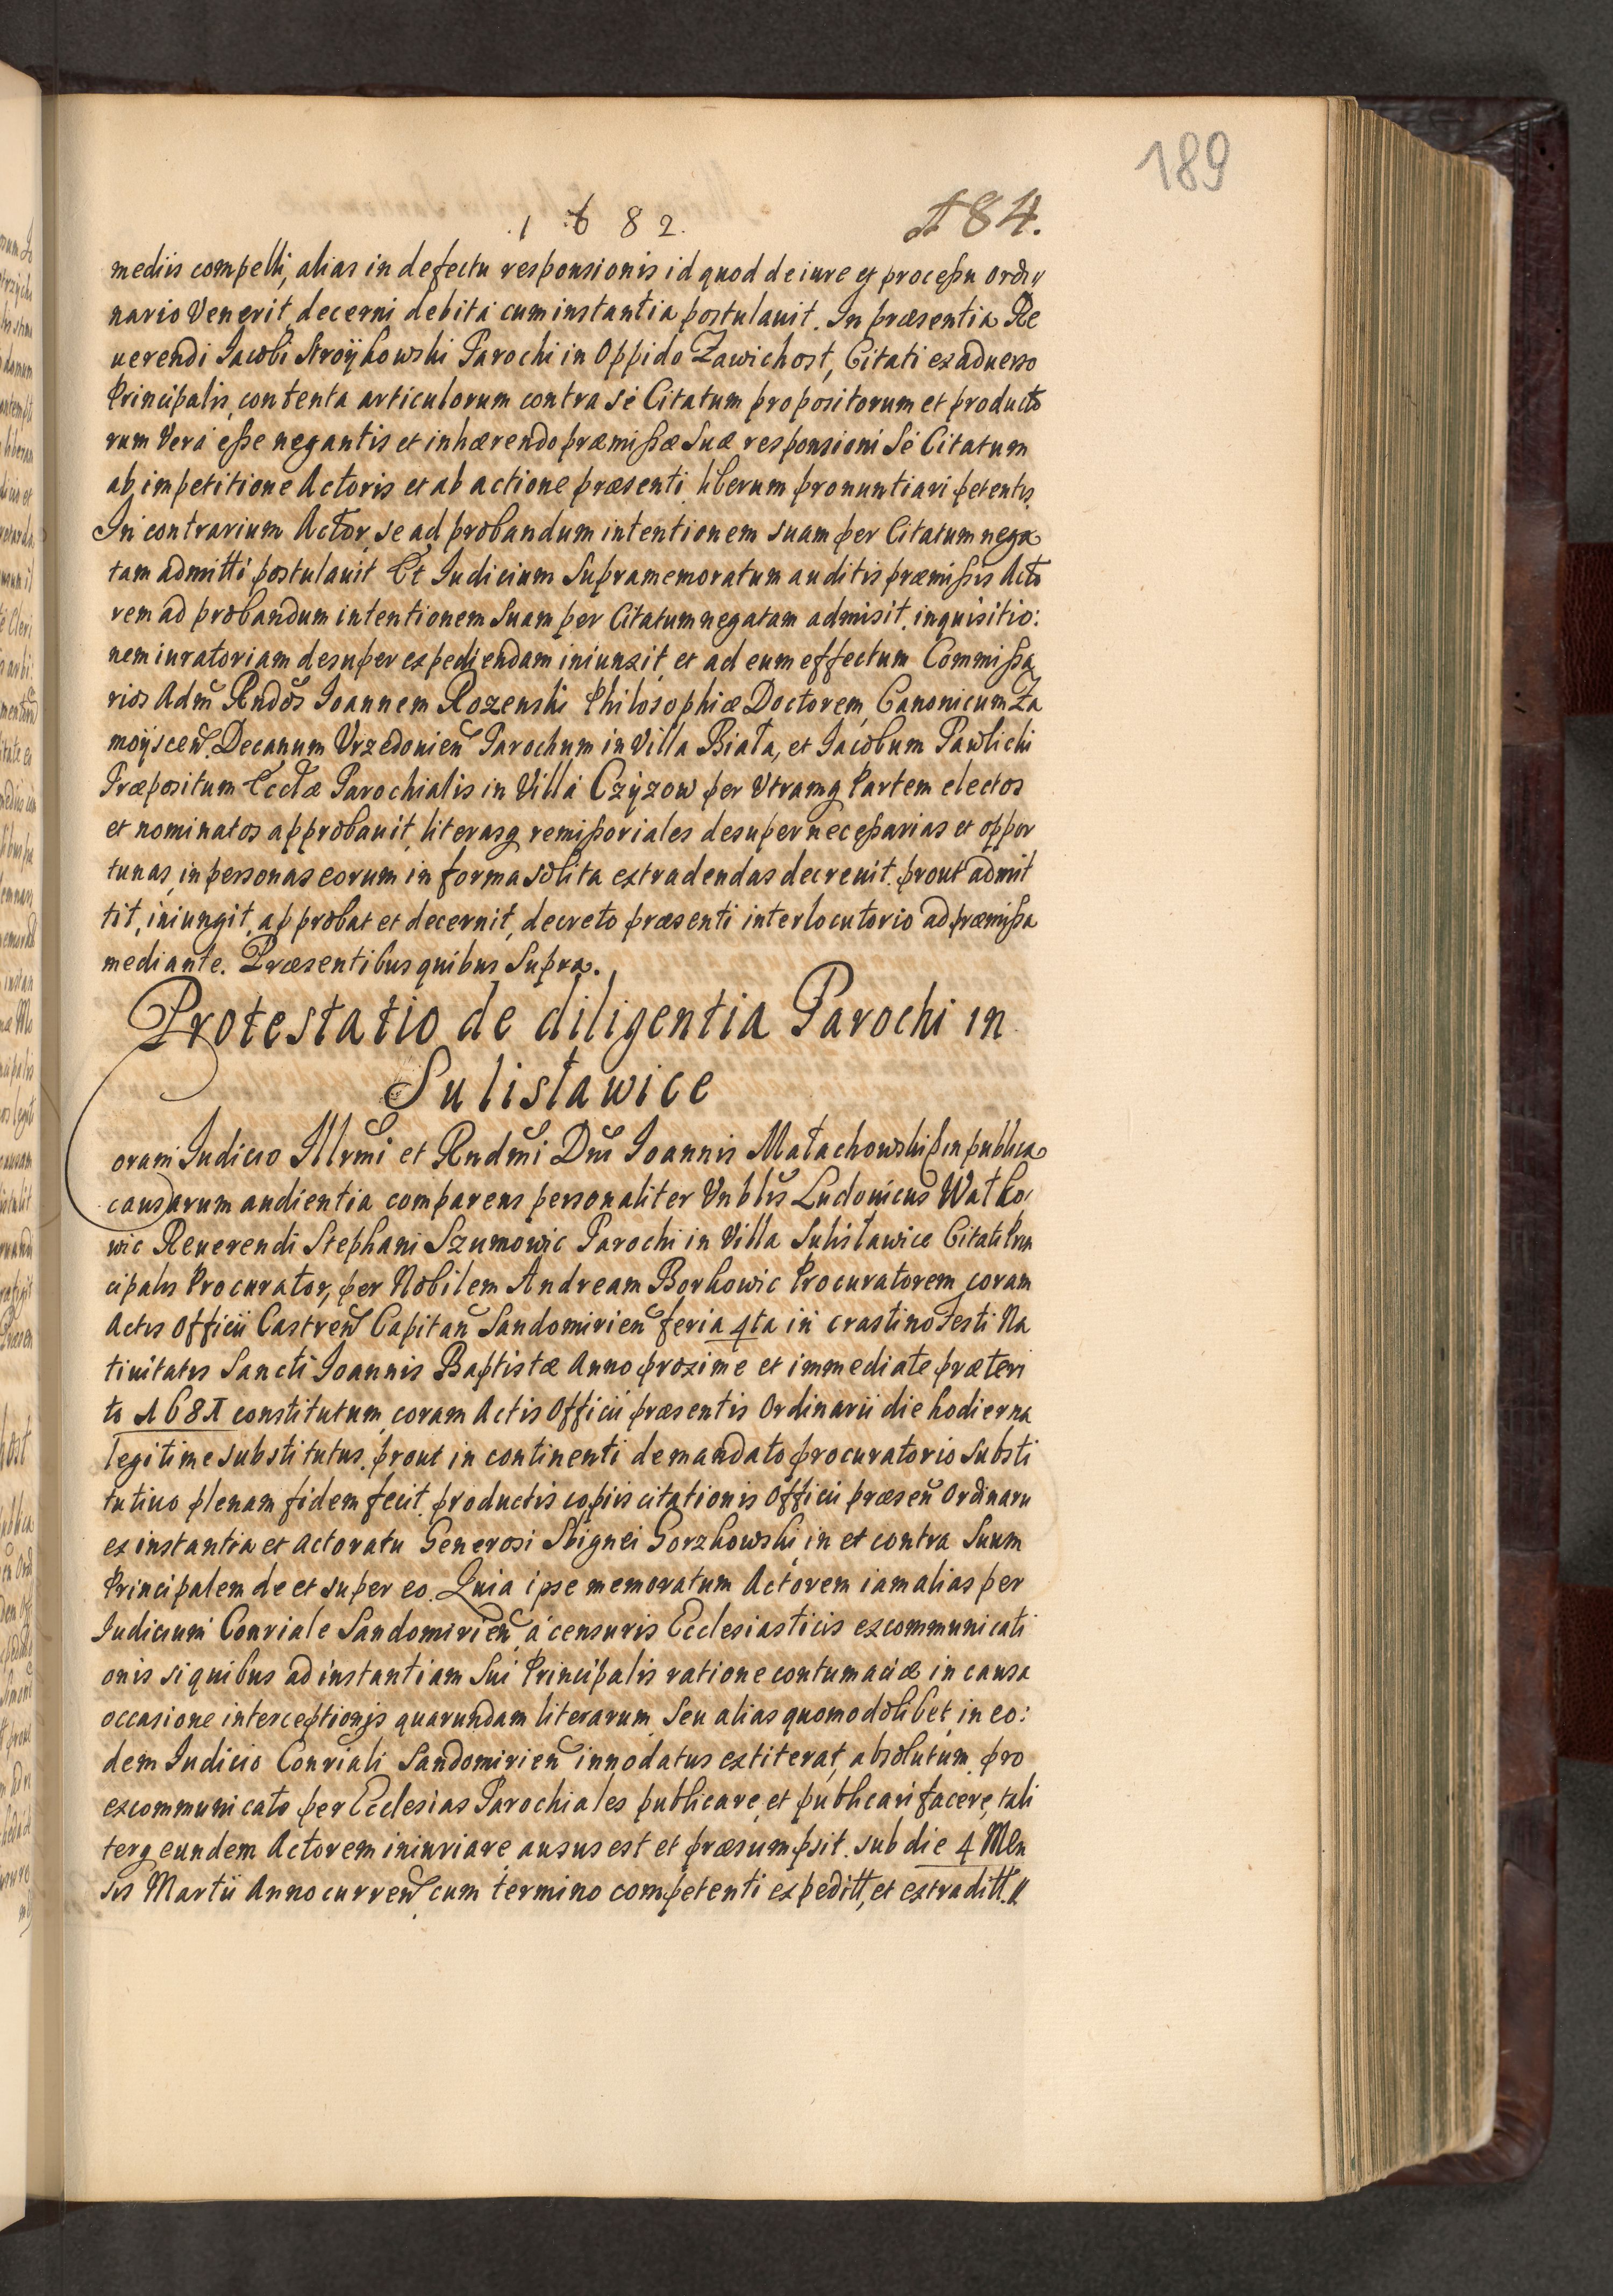 189
1 6 8 2. 184.
mediis compelli, alias in defectu responsionis id quod de iure et processu ordi„
nario Venerit, decerni debita cum instantia postulauit. In præsentia Re
uerendi Iacobi Stroÿkowski Parochi in Oppido Zawichost, Citati ex aduerso
Principalis, contenta articulorum contra sé Citatum propositorum et producto
rum Vera esse negantis et inhærendo præmissæ Suæ responsioni Sé Citatum
ab impetitione Actoris et ab actione præsenti liberum pronuntiari petentis.
In contrarium Actor, se ad probandum intentionem suam per Citatum nega
tam admitti postulauit Et Iudicium Supramemoratum auditis præmissis Acto
rem ad probandum intentionem Suam per Citatum negatam admisit, inquisitio:
nem iuratoriam desuper expediendam iniunxit, et ad eum effectum Commissa
rios Adm Rndos Ioannem Rozenski Philosophiæ Doctorem, Canonicum Za
moÿscen Decanum Vrzedouien Parochum in Villa Biała, et Iacobum Pawlicki
Præpositum Ecclæ Parochialis in Villa Czÿzow per Vtramq Partem electos
et nominatos approbauit, literasq remissoriales desuper necessarias et oppor
tunas, in personas eorum in forma solita extradendas decreuit. prout admit
tit, iniungit, approbat et decernit, decreto præsenti interlocutorio ad præmissa
mediante. Præsentibus quibus Supra.
Protestatio de diligentia Parochi in
Sulisławice
Coram Iudicio Illrmi et Rndmi Dni Ioannis Małachowski in publica
causarum audientia comparens personaliter Vnblis Ludouicus Watko
wic Reuerendi Stephani Szumowic Parochi in Villa Sulisławice Citati Prin
cipalis Procurator, per Nobilem Andream Borkowic Procuratorem coram
Actis Officii Castren Capitan Sandomirien feria 4ta in crastino Festi Na
tiuitatis Sancti Ioannis Baptistæ Anno proxime et immediate præteri
to 1681 constitutum, coram Actis Officii præsentis Ordinarii die hodierna
legitime substitutus, prout in continenti de mandato procuratorio substi
tutiuo plenam fidem fecit, productis copiis citationis Officii præsen Ordinarii
ex instantia et actoratu Generosi Sbignei Gorzkowski, in et contra Suum
Principalem de et super eo. Quia ipse memoratum Actorem iam alias per
Iudicium Conriale Sandomirien á censuris Ecclesiasticis excommunicati
onis siquibus ad instantiam Sui Principalis ratione contumaciæ in causa
occasione interceptionis quarundam literarum, Seu alias quomodolibet, in eo:
dem Iudicio Conriali Sandomirien innodatus extiterat, absolutum, pro
excommunicato per Ecclesias Parochiales publicare, et publicari facere, tali
terq eundem Actorem iniuriare, ausus est et præsumpsit. sub die 4 Men
sis Martii Anno curren cum termino competenti expeditt, et extraditt.